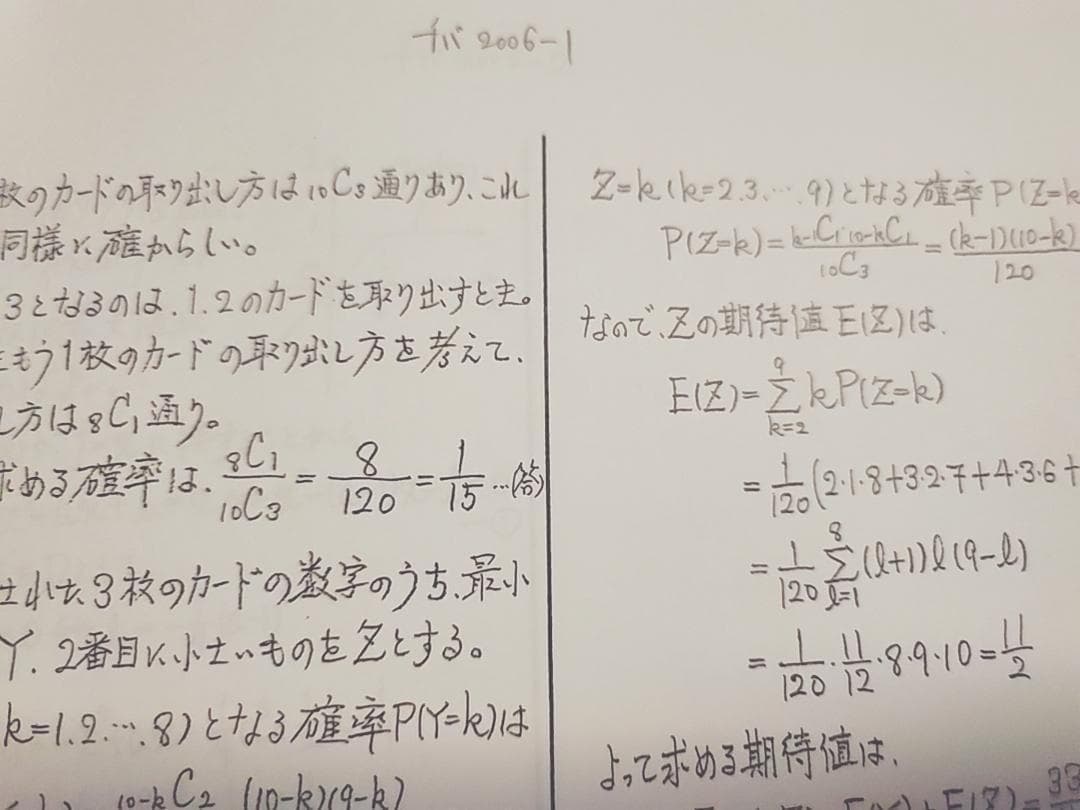 チバ 2006-1
枚のカードの取り出し方は 10C3 通りあり、これ
同様に確からしい。
3となるのは、1.2のカードを取り出すとき。
もう1枚のカードの取り出し方を考えて、
し方は 8C1 通り。
求める確率は、8C1/10C3 = 8/120 = 1/15 …(答)
された3枚のカードの数字のうち、最小
Y、2番目に小さいものをZとする。
k=1.2.….8)となる確率P(Y=k)は
10-kC2 (10-k)(9-k)
Z=k(k=2.3.….9)となる確率P(Z=k
P(Z=k)= k-1C1・10-kC1/10C3 = (k-1)(10-k)/120
なので、Zの期待値E(Z)は、
E(Z)= Σ[k=2→9] kP(Z=k)
= 1/120 (2・1・8+3・2・7+4・3・6+
= 1/120 Σ[l=1→8] (l+1)l(9-l)
= 1/120・11/12・8・9・10 = 11/2
よって求める期待値は、
E(Z)= 33